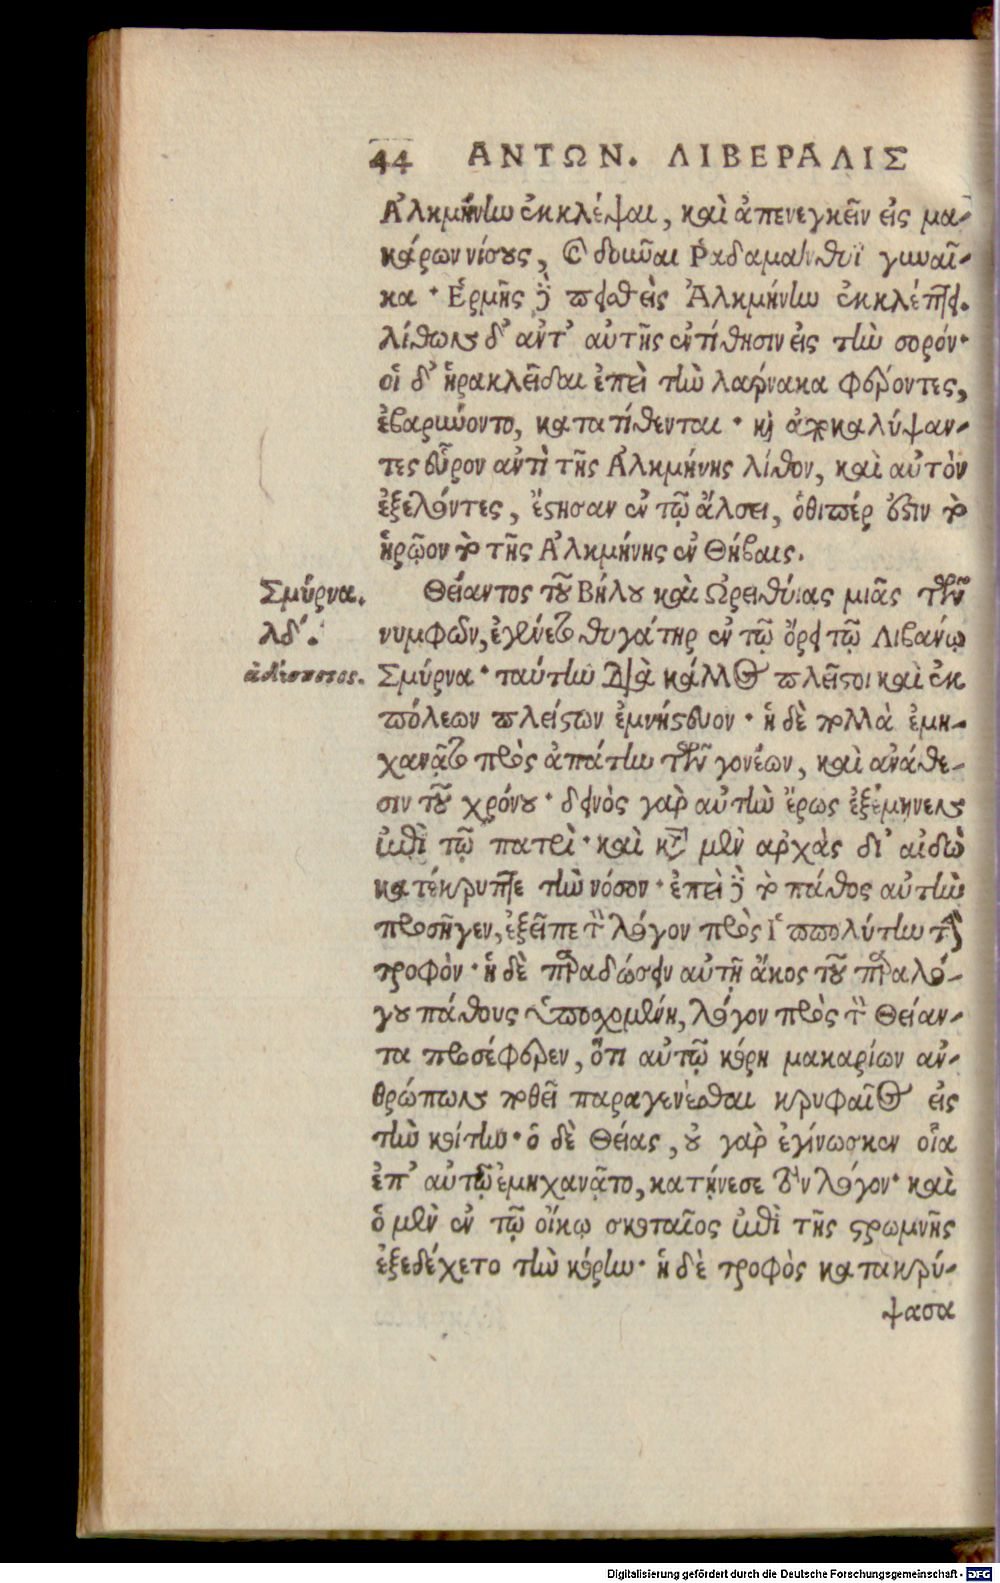 44 ΑΝΤΩΝ. ΛΙΒΕΡΑΛΙΣ
Ἀλκμήνην ἐκκλέψαι, καὶ ἀπενεγκεῖν εἰς μα-
κάρων νίσους, καὶ δοῦναι Ῥαδαμάνθυϊ γυναῖ-
κα· Ἑρμῆς δὲ πεισθεὶς Ἀλκμήνην ἐκκλέπτει.
λίθον δ' ἀντ' αὐτῆς ἐντίθησιν εἰς τὴν σορόν·
οἱ δ' ἡρακλεῖδαι ἐπεὶ τὴν λάρνακα φέροντες,
ἐβαρύνοντο, κατατίθενται· καὶ ἀποκαλύψαν-
τες εὗρον ἀντὶ τῆς Ἀλκμήνης λίθον, καὶ αὐτὸν
ἐξελόντες, ἔστησαν ἐν τῷ ἄλσει, ὅθιπέρ ἐστιν τὸ
ἡρῷον τὸ τῆς Ἀλκμήνης ἐν Θήβαις.
Σμύρνα.
λδ'.
ἀδέσποτος.
Θείαντος τοῦ Βήλου καὶ Ὠρειθυίας μιᾶς τῶν
νυμφῶν, ἐγένετο θυγάτηρ ἐν τῷ ὄρει τῷ Λιβάνῳ
Σμύρνα· ταύτην διὰ κάλλος πλεῖστοι καὶ ἐκ
πόλεων πλείστων ἐμνήστευον· ἡ δὲ πολλὰ ἐμη-
χανᾶτο πρὸς ἀπάτην τῶν γονέων, καὶ ἀνάθε-
σιν τοῦ χρόνου· δεινὸς γὰρ αὐτὴν ἔρως ἐξέμηνεν
ἐπὶ τῷ πατρὶ· καὶ κατ' μὲν ἀρχὰς δι' αἰδῶ
κατέκρυπτε τὴν νόσον· ἐπεὶ δὲ τὸ πάθος αὐτὴν
προσῆγεν, ἐξεῖπε τὸν λόγον πρὸς Ἱππολύτην τὴν
τροφὸν· ἡ δὲ παραδώσειν αὐτῇ ἄκος τοῦ παραλό-
γου πάθους ὑποσχομένη, λόγον πρὸς τὸν Θείαν-
τα προσέφερεν, ὅτι αὐτῷ κόρη μακαρίων ἀν-
θρώπων ποθεῖ παραγενέσθαι κρυφαῖος εἰς
τὴν κοίτην· ὁ δὲ Θείας, οὐ γὰρ ἐγίνωσκεν οἷα
ἐπ' αὐτῷ ἐμηχανᾶτο, κατῄνεσε τὸν λόγον· καὶ
ὁ μὲν ἐν τῷ οἴκῳ σκοταῖος ἐπὶ τῆς στρωμνῆς
ἐξεδέχετο τὴν κόρην· ἡ δὲ τροφὸς κατακρύ-
ψασα
Digitalisierung gefördert durch die Deutsche Forschungsgemeinschaft - DFG